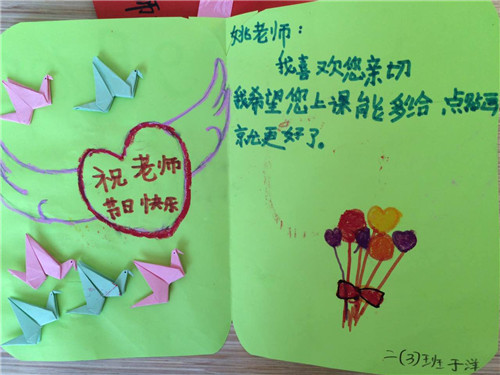 祝老师
节日快乐
姚老师：
我喜欢您亲切
我希望您上课能多给点贴画
就更好了。
二(3)班 于洋